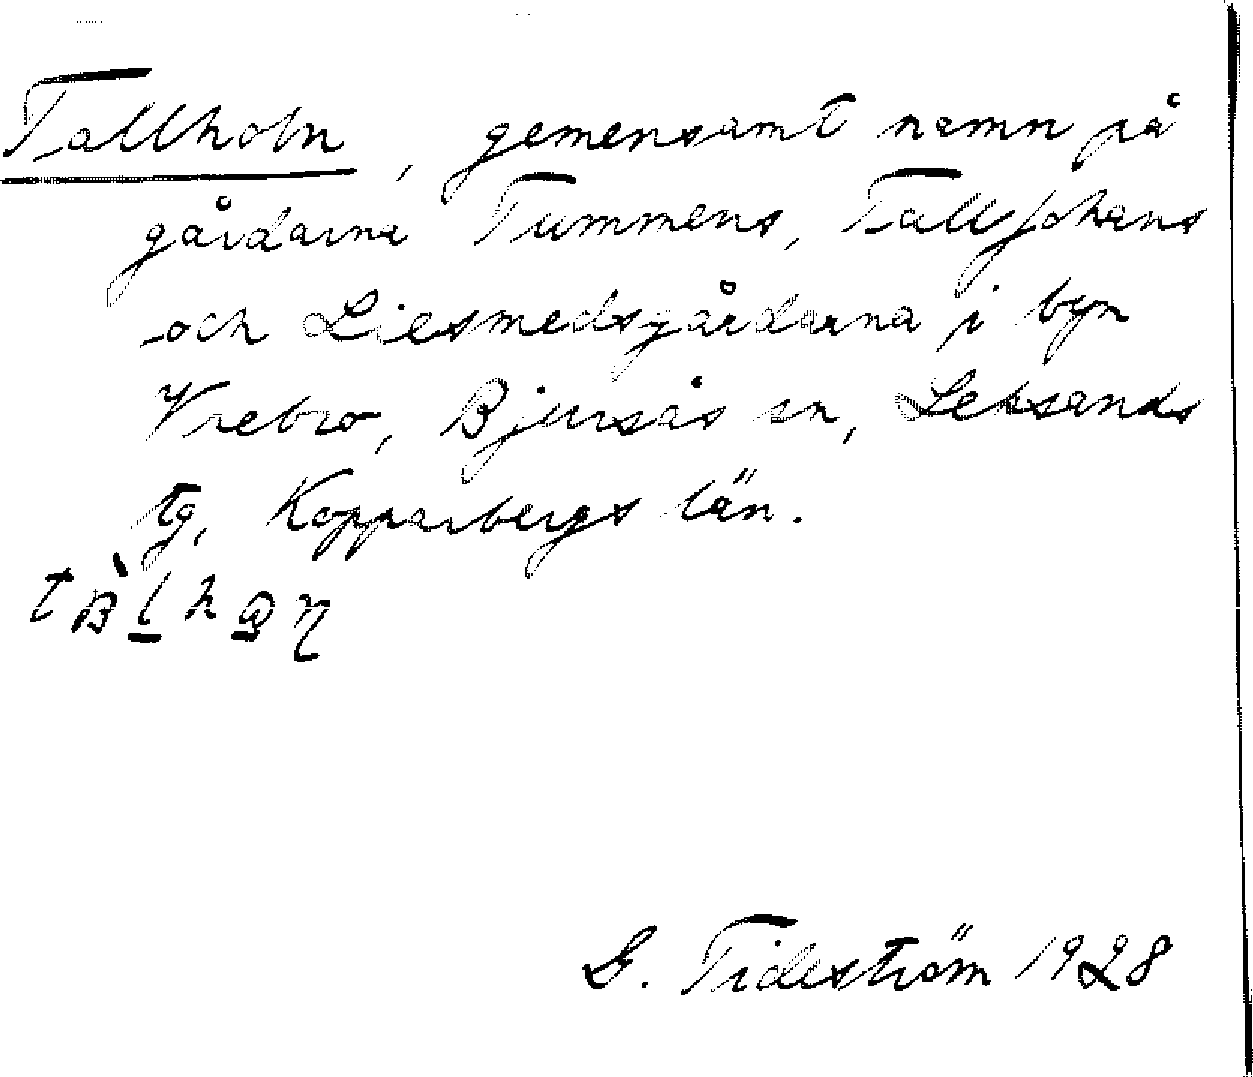 Tallholn, gemensamt namn på
gårdarna Tummens, TallJohans
och Liesmedsgårdarna i byn
Vrebro, Bjursås sn, Leksands
tg, Kopparbergs län.
G. Tideström 1928